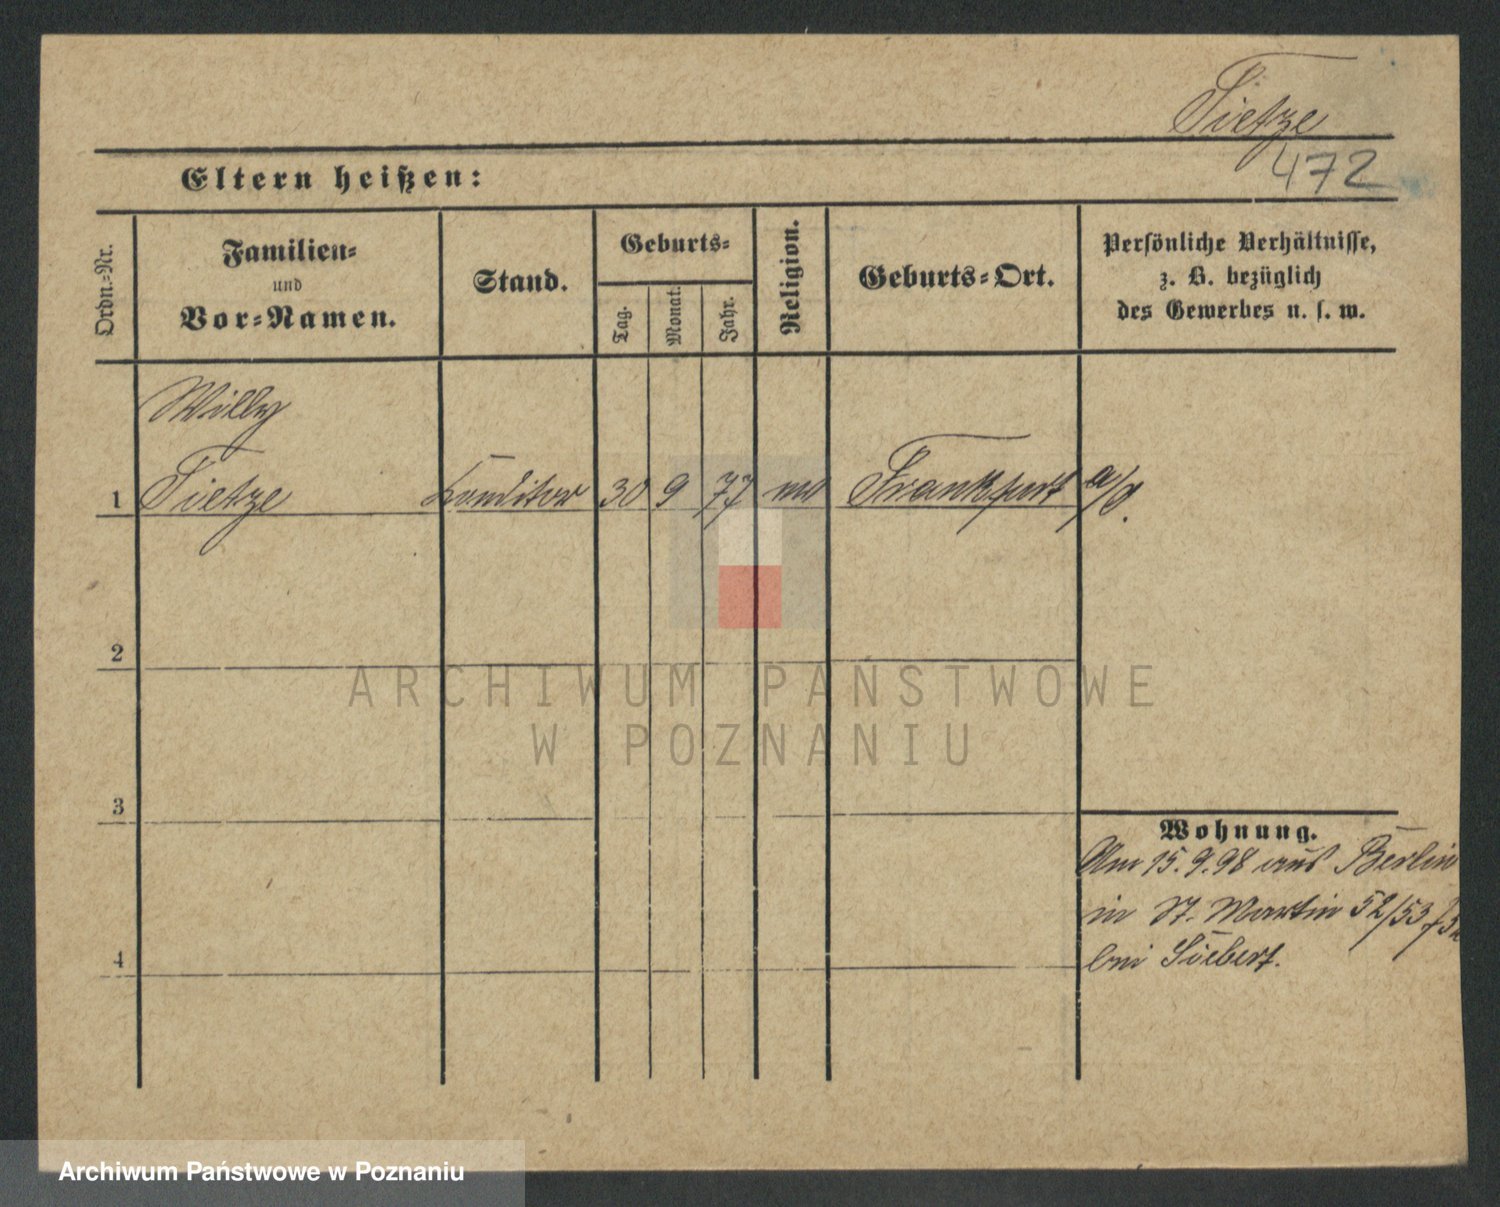 Tietze
472
Eltern heißen:
Ordn.-Nr.
Familien-
und
Vor-Namen.
Stand.
Geburts-
Tag.
Monat.
Jahr.
Religion.
Geburts-Ort.
Persönliche Verhältnisse,
z. B. bezüglich
des Gewerbes u. s. w.
Willy
1 Tietze Konditor 30 9 77 Frankfurt a/O.
2
3
4
Wohnung.
Am 15.9.98 aus Berlin
in St. Martin 52/53
bei Siebert.
ARCHIWUM PAŃSTWOWE
W POZNANIU
Archiwum Państwowe w Poznaniu